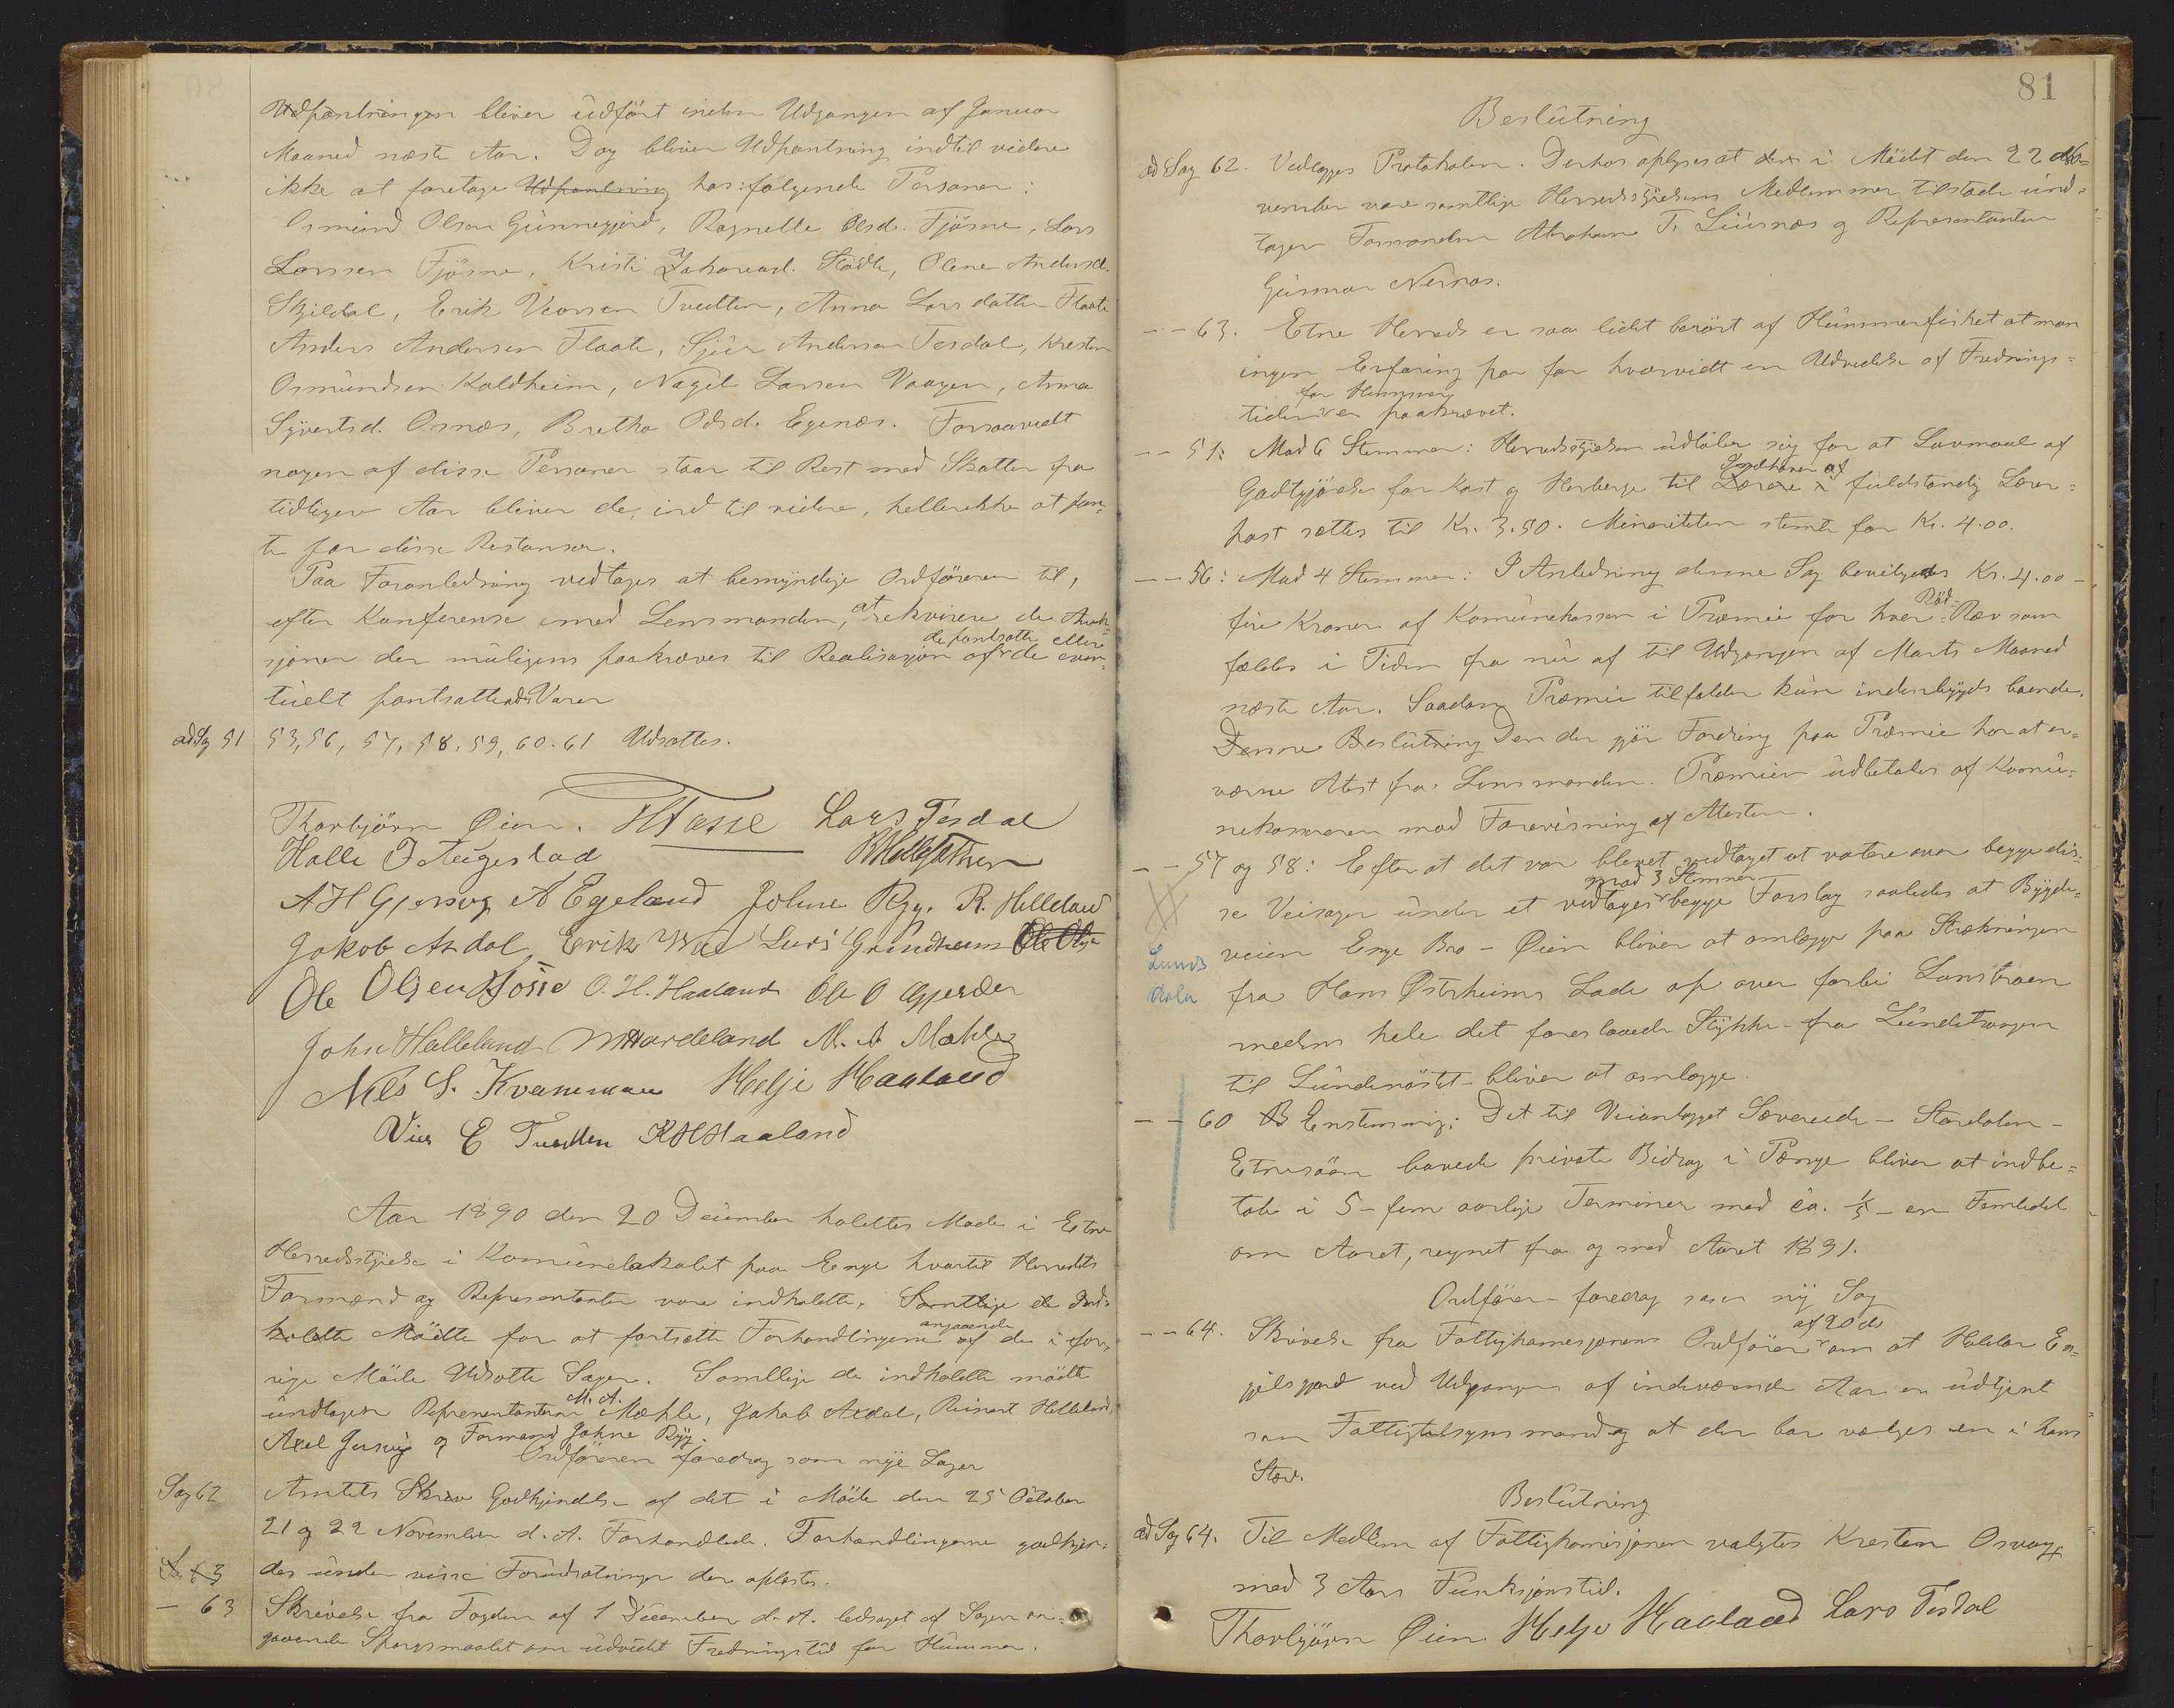 Udpantningen bliver udført inden Udgangen af Januar
Maaned næste Aar. Dog bliver Udpantning indtil videre
ikke at foretage Udpantning hos følgende Personer:
Osmund Olsen Gunnegjerd, Ragnelle Olsd. Fjøsne, Lars
Larssen Fjøsne, Kristi Zakariasd. Stødle, Olene Andersd.
Skjeldal, Erik Tvedten, Anna Larsdatter Flaate
Anders Andersen Flaate, Sjur Andersen Tesdal, Kresten
Osmundsen Kaldheim, Nagel Larsen Vaagen, Anna
Syvertsd. Osnes, Bretha Odsd. Egenæs. Forsaavidt
nogen af disse Personer staar til Rest med Skatter fra
tidligere Aar bliver de, ind til videre, heller ikke at pan-
te for disse Restanser.
Paa Foranledning vedtages at bemyndige Ordføreren til,
efter Konferense med Lensmanden, at rekvirere de Auk-
sjoner der muligens paakræves til Realisasjon af de pantsatte eller de even-
tuelt pantsattendes Varer
ad Sag 51 53, 56, 57, 58, 59, 60. 61 Udsattes.
Thorbjørn Øien. Lars Tesdal
Halle
A H Gjersvig A Egeland Johne Ryg. R. Helleland
Jakob Asdal, Erik Lars Grindheim Ole Olsen
Ole Olsen O. H. Haaland Ole O Gjerder
John Helleland M Hardeland M. A Mæhle
Nils S. Kvammen Helje Haaland
E Tvedten K H Haaland
Aar 1890 den 20 December holdtes Møde i Etne
Herredsstyrelse i Komunelokalet paa Enge hvortil Herredets
Formænd og Representanter vare indkaldte. Samtlige de ind-
kaldte Mødte for at fortsætte Forhandlingerne angaaende af de i for-
rige Møde Udsatte Sager. Samtlige de indkaldte mødte
undtagen Representanterne M. A. Mæhle, Jakob Asdal, Reinert Helleland,
Axel Gjersvig og Formand Johne Ryg.
Ordføreren foredrog som nye Sager
Sag 62 Amtets Skriv Godkjendelse af det i Møde den 25 October
21 og 22 November d. A. Forhandlede. Forhandlingerne godkjen-
Sag 63 des under visse Forudsætninger der oplæstes.
— 63 Skrivelse fra Fogden af 1 December d. A. ledsaget af Sagen an-
gaaende Spørgsmaalet om udvidet Fredningstid for Hummer.
81
Beslutning
ad Sag 62. Vedlægges Protokolen. Derhos oplyses at den i Mødet den 22 No-
vember vare samtlige Herredsstyrelsens Medlemmer tilstede und-
tagen Formanden Abraham T. Liusnæs og Representanten
Gunnar Nernæs.
- - 63. Etne Herred er saa lidet berørt af Hummerfisket at man
ingen Erfaring har for hvorvidt en Udvidelse af Frednings-
tiden for Hummer er paakrævet.
- - 51: Med 6 Stemmer: Herredsstyrelsen udtaler sig for at Lavmaal af
Godtgjørelse for Kost og Herberge til Lærere i Indhaver af fuldstændig Lærer-
post sættes til Kr. 3.50. Minoriteten stemte for Kr. 4.00.
- - 56: Med 4 Stemmer: I Anledning denne Sag bevilgedes Kr. 4.00 -
fire Kroner af Komunekassen i Præmie for hver Rød- Ræv som
fældes i Tiden fra nu af til Udgangen af Marts Maaned
næste Aar. Saadan Præmie tilfalder kun indenbygds boende.
Denne Beslutning Den der gjør Fordring paa Præmie har at er-
værve Atest fra Lensmanden. Præmien udbetales af Komu-
nekasseren mod Forevisning af Atesten.
- - 57 og 58: Efter at det var blevet vedtaget at votere over begge dis-
se Veisager under et vedtages med 3 Stemmer begge Forslag saaledes at Bygde-
veien Enge Bro - Øien bliver at omlægge paa Strækningen
Lunds
dala
fra Hans Østrheims Lade op over forbi
medens hele det foreslaaede Stykke - fra
til bliver at omlægge.
- - 60 B Enstemmig: Det til Veianlægget Sævereide - Stordalen -
Etnesøen lovede private Bidrag i Penge bliver at indbe-
tale i 5 - fem aarlige Terminer med ca. 1/5 - en Femtedel
om Aaret, regnet fra og med Aaret 1891.
Ordføreren foredrog som ny Sag
- - 64. Skrivelse fra Fattigkomisjonens Ordfører af 20 ds om at Haldor En-
gjelsgjerd ved Udgangen af indeværende Aar er udtjent
som Fattigtilsynsmand og at der bør vælges en i hans
Sted.
Beslutning
ad Sag 64. Til Medlem af Fattigkomisjonen valgtes Kresten Osvag
med 3 Aars Funksjonstid.
Thorbjørn Øien Helje Haaland Lars Tesdal